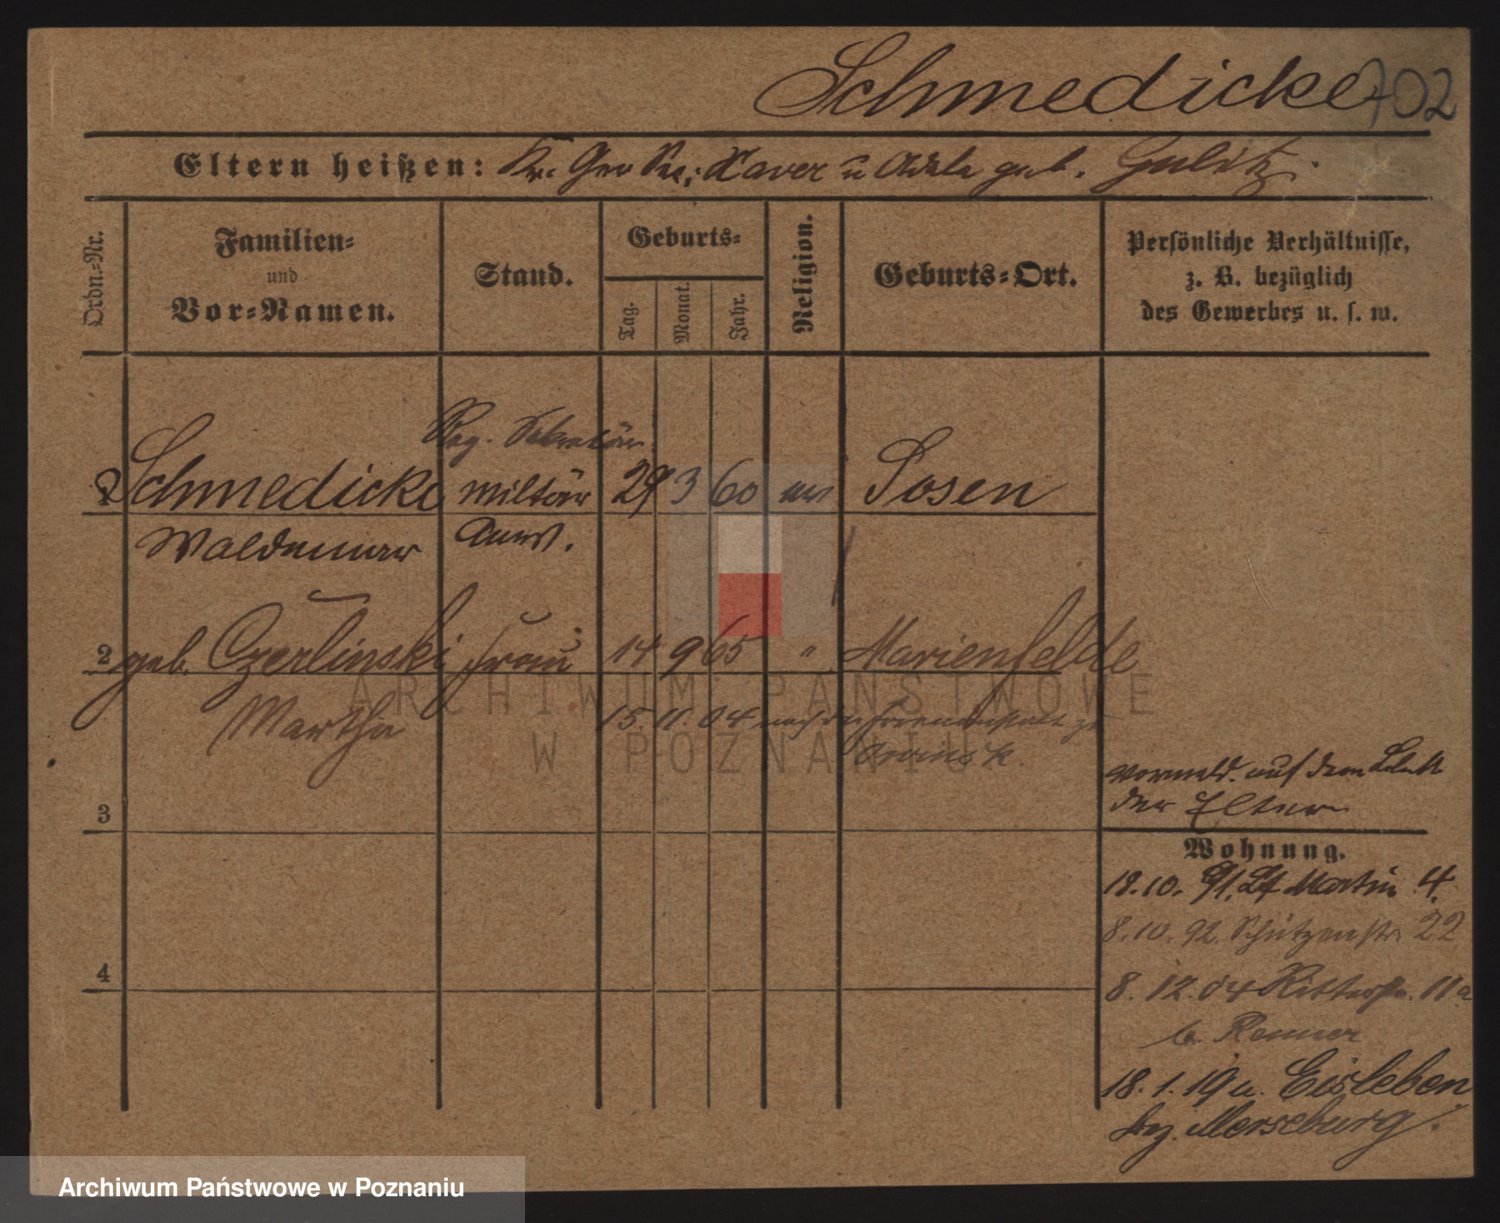 Schmedicke 702
Eltern heißen: Kr. Ger Sec. Xaver u Adele geb. Gulitz.
Ordn.-Nr.
Familien-
und
Vor-Namen.
Stand.
Geburts-
Tag.
Monat.
Jahr.
Religion.
Geburts-Ort.
Persönliche Verhältnisse,
z. B. bezüglich
des Gewerbes u. s. w.
Reg. Sekretär
1 Schmedicke Militär 29 3 60 ev Posen
Waldemar Anw.
2 geb. Czerlinski Frau 14 9 65 " Marienfelde
Martha 15. 11. 04 nach der Irrenanstalt zu
Owinsk.
3
4
vormeld. auf dem Blatt
der Eltern
Wohnung.
18.10. 91. St Martin 4.
8.10.92. Schützenstr 22
8.12.04 Ritterstr. 11a
b. Renner
18.1.19 n. Eisleben
bz. Merseburg.
ARCHIWUM PAŃSTWOWE
W POZNANIU
Archiwum Państwowe w Poznaniu